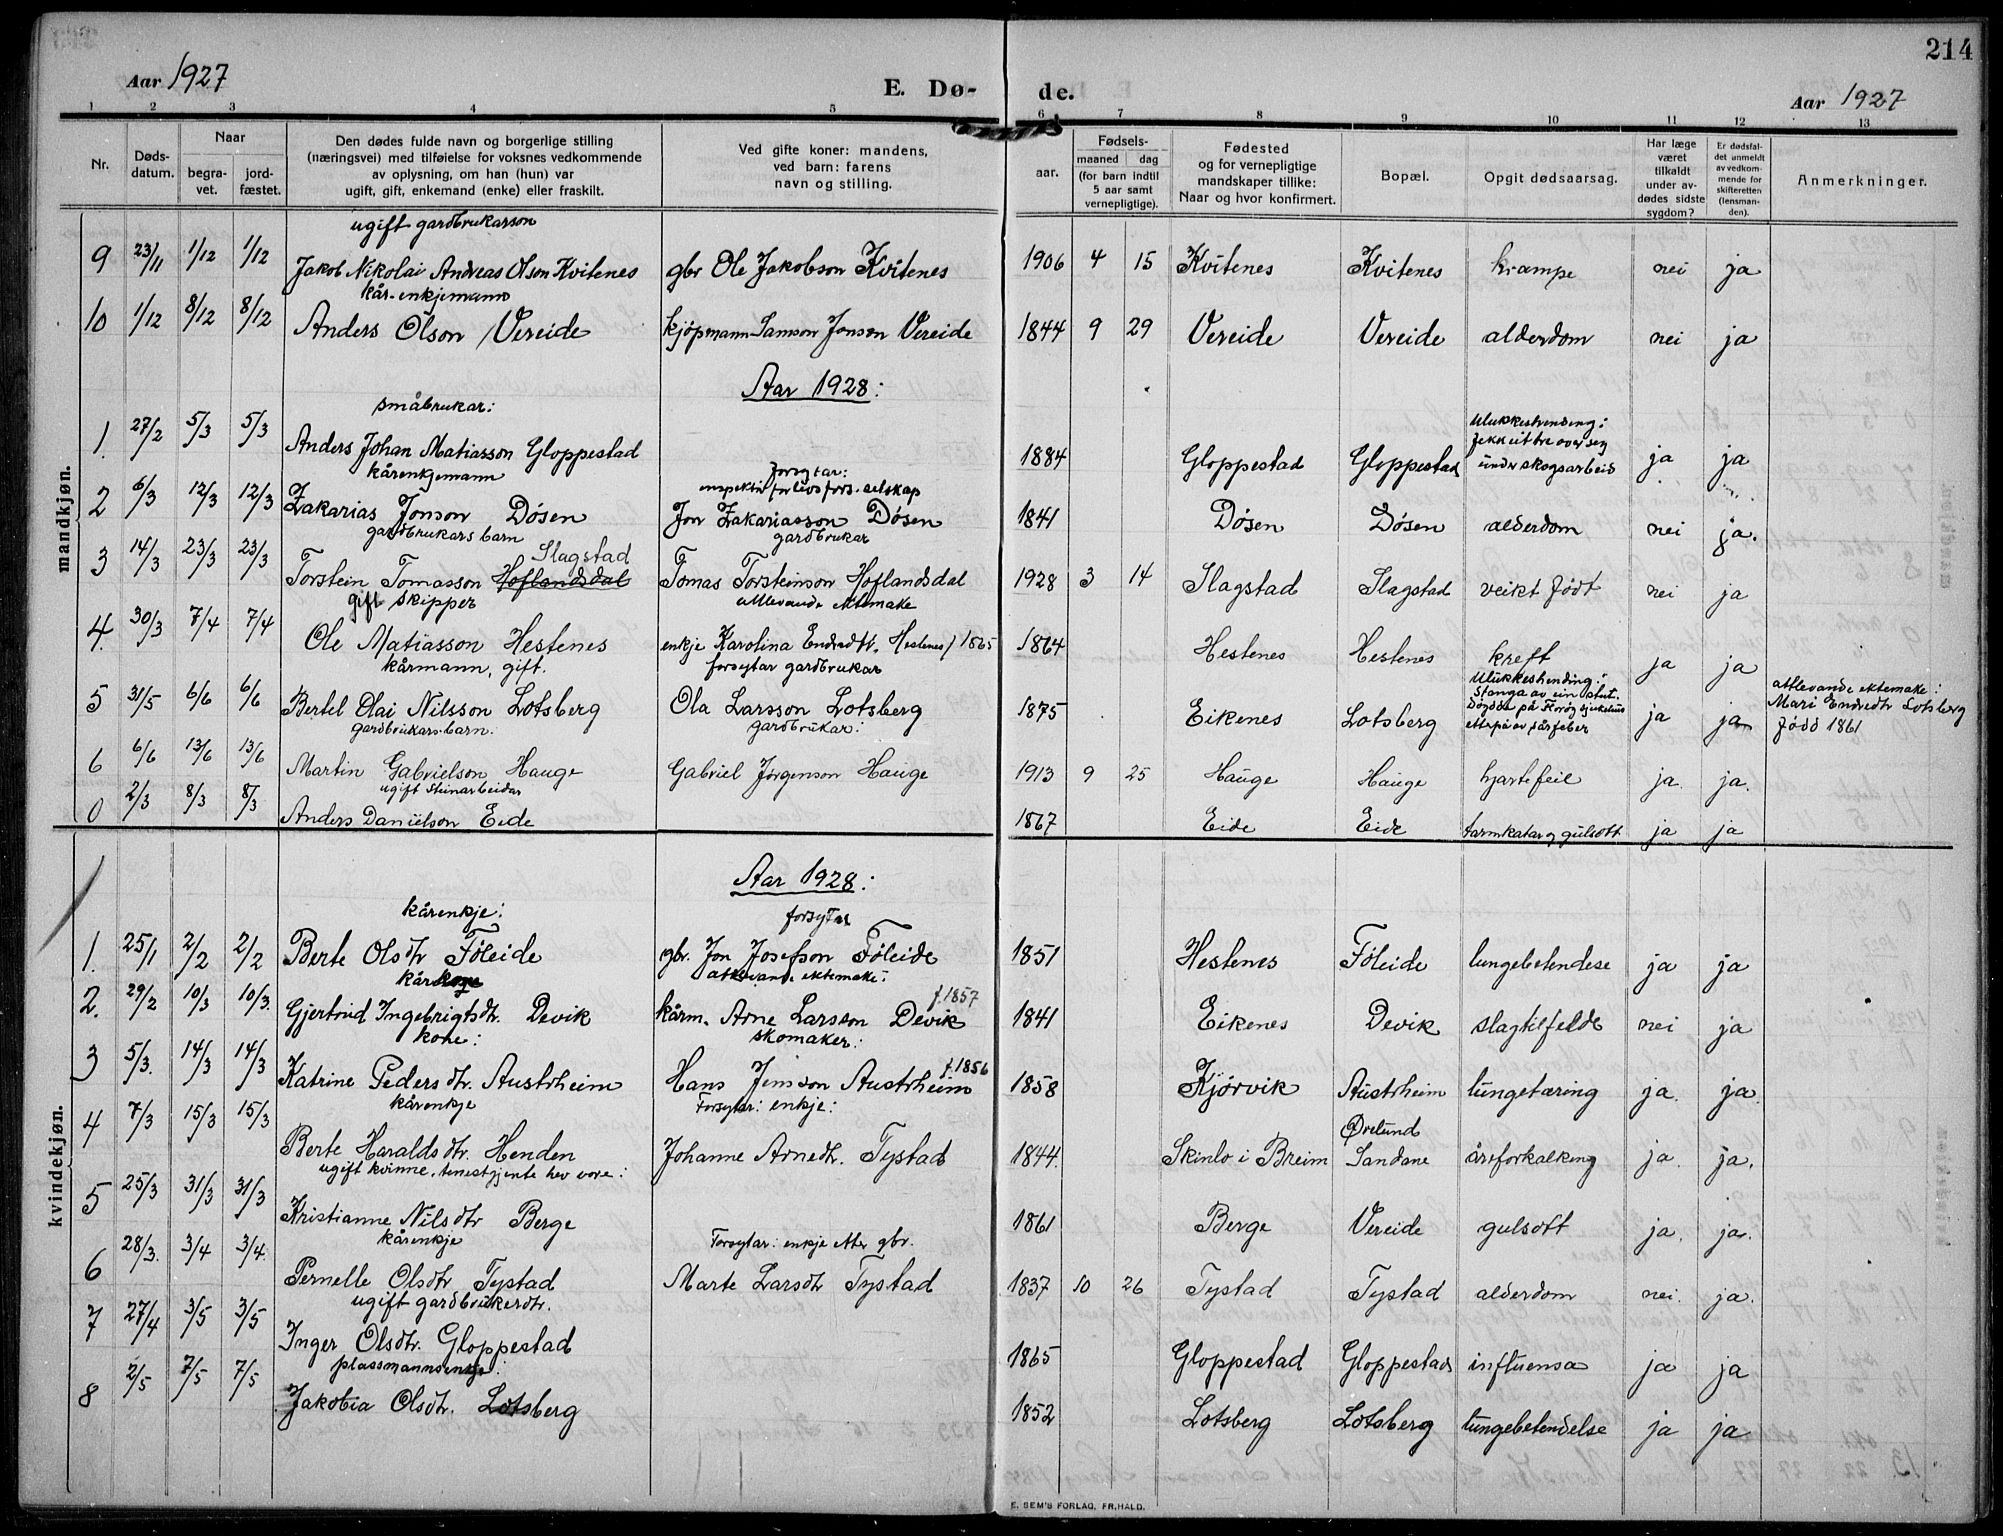 214
Aar 1927 E. Dø- de. Aar 1927
1 2 3 4 5 6 7 8 9 10 11 12 13
Nr.
Døds-
datum.
Naar
begra-
vet.
jord-
fæstet.
Den dødes fulde navn og borgerlige stilling
(næringsvei) med tilføielse for voksnes vedkommende
av oplysning, om han (hun) var
ugift, gift, enkemand (enke) eller fraskilt.
Ved gifte koner: mandens,
ved barn: farens
navn og stilling.
Fødsels-
aar.
maaned dag
(for barn indtil
5 aar samt
vernepligtige).
Fødested
og for vernepligtige
mandskaper tillike:
Naar og hvor konfirmert.
Bopæl.
Opgit dødsaarsag.
Har læge
været
tilkaldt
under av-
dødes sidste
sygdom?
Er dødsfal-
det anmeldt
av vedkom-
mende for
skifteretten
(lensman-
den).
Anmerkninger.
mandkjøn.
ugift gardbrukarson
9 23/11 1/12 1/12 Jakob Nikolai Andreas Olson Kvitenes gbr Ole Jakobson Kvitenes 1906 4 15 Kvitenes Kvitenes krampe nei ja
kår-enkjemann
10 1/12 8/12 8/12 Anders Olson Vereide kjöpmann Samson Jonson Vereide 1844 9 29 Vereide Vereide alderdom nei ja
Aar 1928:
småbrukar: Ulukkeshending:
fekk eit tre over seg
1. 27/2 5/3 5/3 Anders Johan Matiasson Gloppestad 1884 Gloppestad Gloppestad under skogsarbeid ja ja
kårenkjemann forsytar:
inspektør for livsfors. selskap
2 6/3 12/3 12/3 Zakarias Jonson Døsen Jon Zakariasson Døsen 1841 Døsen Døsen alderdom nei ja.
gardbrukars barn gardbrukar
Slagstad
3 14/3 23/3 23/3 Torstein Tomasson Hoflandsdal Tomas Torsteinson Hoflandsdal 1928 3 14 Slagstad Slagstad veikt født nei ja
gift skipper attlevande ektemake
4. 30/3 7/4 7/4 Ole Matiasson Hestenes enkje Karolina Endredtr. Hestenes f 1865 1864 Hestenes Hestenes kreft ja ja
kårmann, gift. forsytar gardbrukar Ulukkeshending:
Stanga av ein stut. attlevande ektemake:
Døydde på Florø sjukehus Mari Endredtr Lotsberg
5 31/5 6/6 6/6 Bertel Olai Nilsson Lotsberg Ola Larsson Lotsberg 1875 Eikenes Lotsberg etterpå av sårfeber ja ja fødd 1861
gardbrukars barn. gardbrukar:
6 6/6 13/6 13/6 Martin Gabrielson Hauge Gabriel Jørgenson Hauge 1913 9 25 Hauge Hauge hjartefeil ja. ja.
ugift steinarbeidar
0 2/3 8/3 8/3 Anders Danielson Eide 1867 Eide Eide tarmkatar og gulsott ja ja
kvindekjøn.
Aar 1928:
kårenkje: forsytar
1. 25/1 2/2 2/2 Berte Olsdtr Føleide gbr. Jon Josefson Føleide 1851 Hestenes Føleide lungebetendese ja ja
kårkone attlevande ektemake:
f. 1857
2. 29/2 10/3 10/3. Gjertrud Ingebrigtsdtr. Devik kårm. Arne Larsson Devik 1841 Eikenes Devik slagtilfelde nei ja
kone: skomaker:
f. 1856
3 5/3. 14/3 14/3 Katrine Pedersdtr. Austrheim Hans Jensson Austrheim 1858 Kjørvik Austrheim lungetæring ja. ja.
kårenkje Forsytar: enkje:
Ørelund
4 7/3 15/3 15/3 Berte Haraldsdtr. Henden Johanne Arnedtr. Tystad 1844. Skinlo i Breim Sandane åreforkalking ja. ja.
ugift kvinne, tenestgjente hev vore:
5 25/3 31/3 31/3 Kristianne Nilsdtr Berge 1861 Berge Vereide gulsott ja. ja.
kårenkje Forsytar: enkje etter gbr.
6 28/3. 3/4 3/4. Pernelle Olsdtr Tystad Marte Larsdtr Tystad 1837 10 26 Tystad Tystad alderdom nei. ja.
ugift gardbrukerdtr.
7 27/4 3/5 3/5 Inger Olsdtr. Gloppestad 1865 Gloppestad Gloppestad influensa ja ja
plassmannsenkje:
8 2/5 7/5 7/5 Jakobia Olsdtr. Lotsberg 1852 Lotsberg Lotsberg lungebetendelse ja ja
E. SEM'S FORLAG, FR.HALD.